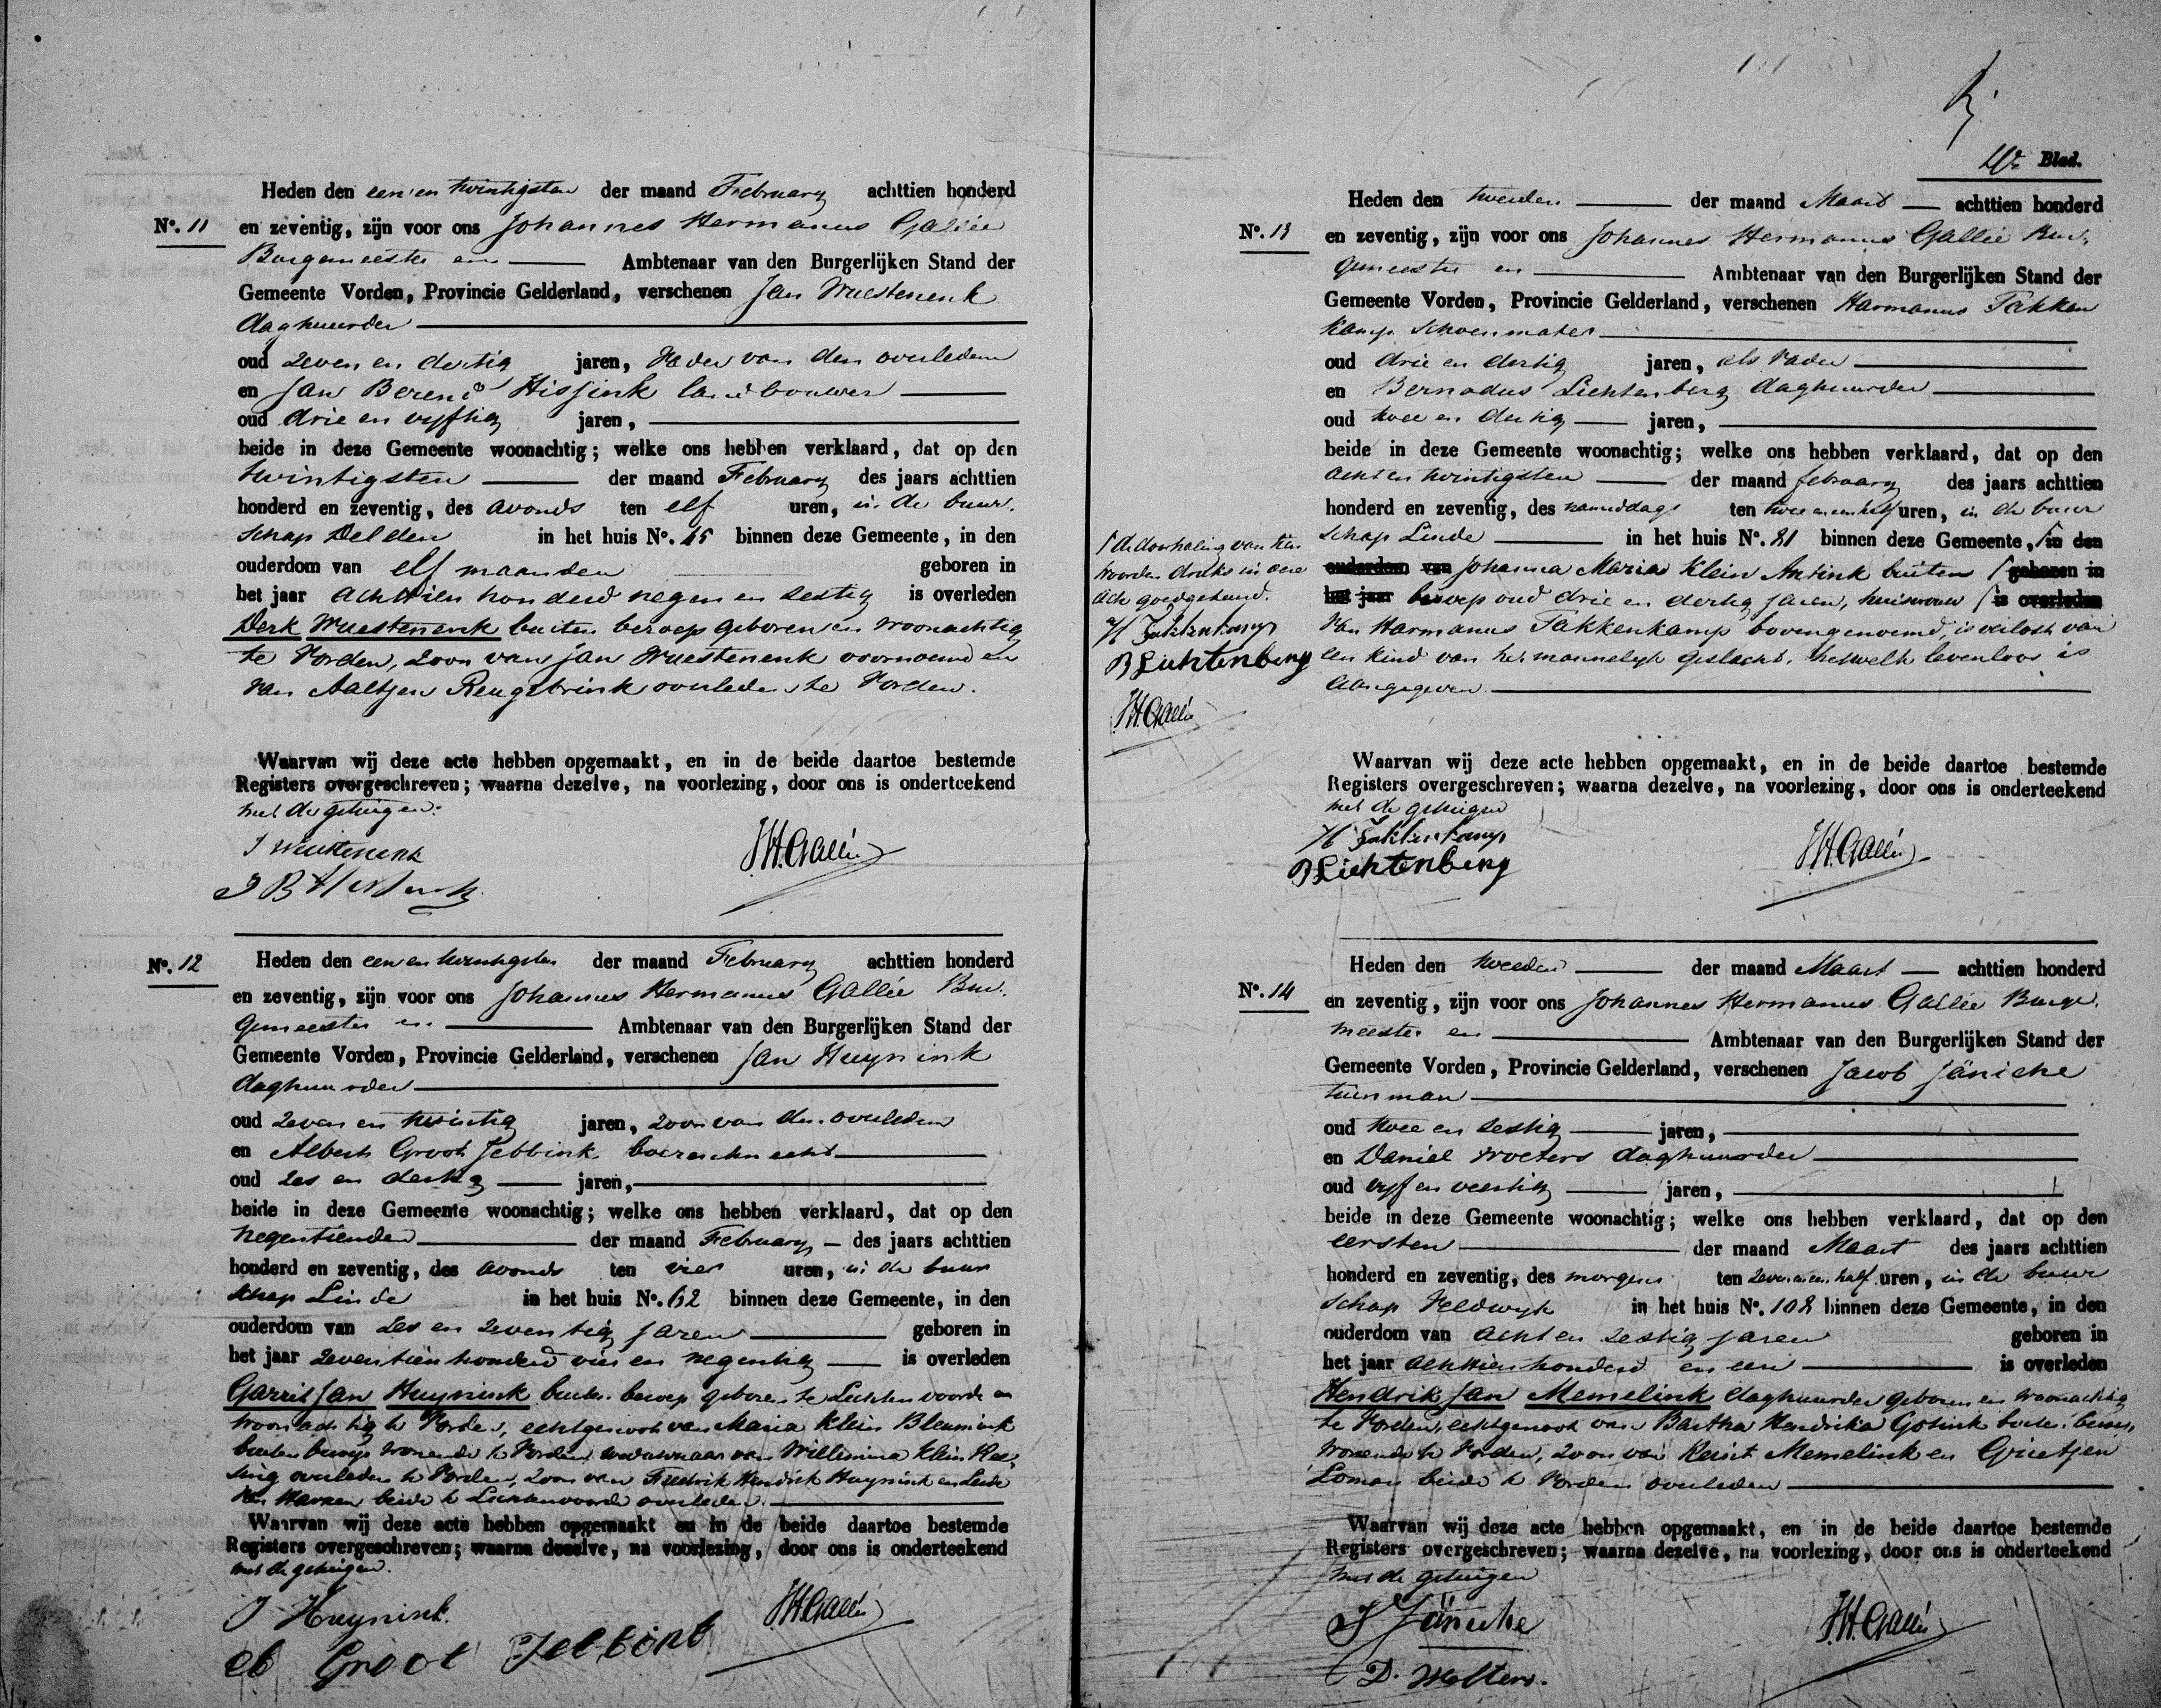 Heden den een en twintigsten der maand February achttien honderd
No. 11 en zeventig, zijn voor ons Johannes Hermanus Gallée
Burgemeester en Ambtenaar van den Burgerlijken Stand der
Gemeente Vorden, Provincie Gelderland, verschenen Jan Wuestenenk
daghuurder
oud zeven en dertig jaren, Vader van den overledene
en Jan Berend Hissink landbouwer
oud drie en vyftig jaren,
beide in deze Gemeente woonachtig; welke ons hebben verklaard, dat op den
twintigsten der maand February des jaars achttien
honderd en zeventig, des avonds ten elf uren, in de buur-
schap Delden in het huis No. 45 binnen deze Gemeente, in den
ouderdom van elf maanden geboren in
het jaar achttien honderd negen en sestig is overleden
Derk Wuestenenk buiten beroep geboren en woonachtig
te Vorden, zoon van Jan Wuestenenk voornoemd en
van Aaltjen Rengelink overleden te Vorden.
Waarvan wij deze acte hebben opgemaakt, en in de beide daartoe bestemde
Registers overgeschreven; waarna dezelve, na voorlezing, door ons is onderteekend
met de getuigen.
J Wuestenenk
JHGallée
J B Hissink
No. 12 Heden den een en twintigsten der maand February achttien honderd
en zeventig, zijn voor ons Johannes Hermanus Gallée Bur-
gemeester en Ambtenaar van den Burgerlijken Stand der
Gemeente Vorden, Provincie Gelderland, verschenen Jan Huynink
daghuurder
oud zeven en twintig jaren, zoon van den overleden
en Albert Groot Jebbink boereknecht
oud zes en dertig jaren,
beide in deze Gemeente woonachtig; welke ons hebben verklaard, dat op den
negentienden der maand February des jaars achttien
honderd en zeventig, des avonds ten vier uren, in de buur
schap Linde in het huis No. 62 binnen deze Gemeente, in den
ouderdom van zes en zeventig jaren geboren in
het jaar zeventien honderd vier en negentig is overleden
Garrit Jan Huynink buiten beroep geboren te Lichtenvoorde en
woonachtig te Vorden, echtgenoot van Maria Klein Bleumink
buiten beroep wonende te Vorden, weduwnaar van Willemina Klein
overleden te Vorden, zoon van Fredrik Hendrik Huynink en
beide te Lichtenvoorde overleden.
Waarvan wij deze acte hebben opgemaakt en in de beide daartoe bestemde
Registers overgeschreven; waarna dezelve, na voorlezing, door ons is onderteekend
met de getuigen.
J Huynink.
JHGallée
Ab Groot Jebbink
4de Blad.
Heden den tweeden der maand Maart achttien honderd
No. 13 en zeventig, zijn voor ons Johannes Hermanus Gallée Bur-
gemeester en Ambtenaar van den Burgerlijken Stand der
Gemeente Vorden, Provincie Gelderland, verschenen Harmanus Takken
kamp schoenmaker
oud drie en dertig jaren, als vader
en Bernadus Lichtenberg daghuurder
oud twee en dertig jaren,
beide in deze Gemeente woonachtig; welke ons hebben verklaard, dat op den
acht en twintigsten der maand february des jaars achttien
honderd en zeventig, des namiddags ten twee en een half uren, in de buur
schap Linde in het huis No. 81 binnen deze Gemeente, in den
ouderdom van Johanna Maria Klein Antink buiten geboren in
het jaar beroep oud drie en dertig jaren, huisvrouw is overleden
van Harmanus Takkenkamp bovengenoemd, is verlost van
een kind van het mannelyk geslacht, hetwelk levenloos is
aangegeven
de doorhaling van tien
woorden druks in deze
acte goedgekeurd.
H Takkenkamp
B Lichtenberg
JHGallée
Waarvan wij deze acte hebben opgemaakt, en in de beide daartoe bestemde
Registers overgeschreven; waarna dezelve, na voorlezing, door ons is onderteekend
met de getuigen
H Takkenkamp
JHGallée
B Lichtenberg
Heden den tweeden der maand Maart achttien honderd
No. 14 en zeventig, zijn voor ons Johannes Hermanus Gallée Burge-
meester en Ambtenaar van den Burgerlijken Stand der
Gemeente Vorden, Provincie Gelderland, verschenen Jacob Jäniche
tuinman
oud twee en sestig jaren,
en Daniel Wolters daghuurder
oud vyf en veertig jaren,
beide in deze Gemeente woonachtig; welke ons hebben verklaard, dat op den
eersten der maand Maart des jaars achttien
honderd en zeventig, des morgens ten zeven en een half uren, in de buur
schap Veldwyk in het huis No. 108 binnen deze Gemeente, in den
ouderdom van acht en zestig jaren geboren in
het jaar achttien honderd en een is overleden
Hendrik Jan Memelink daghuurder geboren en woonachtig
te Vorden, echtgenoot van Bartha Hendrika Gotink buiten beroep,
wonende te Vorden, zoon van Reint Memelink en Grietjen
Loman beide te Vorden overleden
Waarvan wij deze acte hebben opgemaakt, en in de beide daartoe bestemde
Registers overgeschreven; waarna dezelve, na voorlezing, door ons is onderteekend
met de getuigen
J Jäniche
JHGallée
D. Wolters.